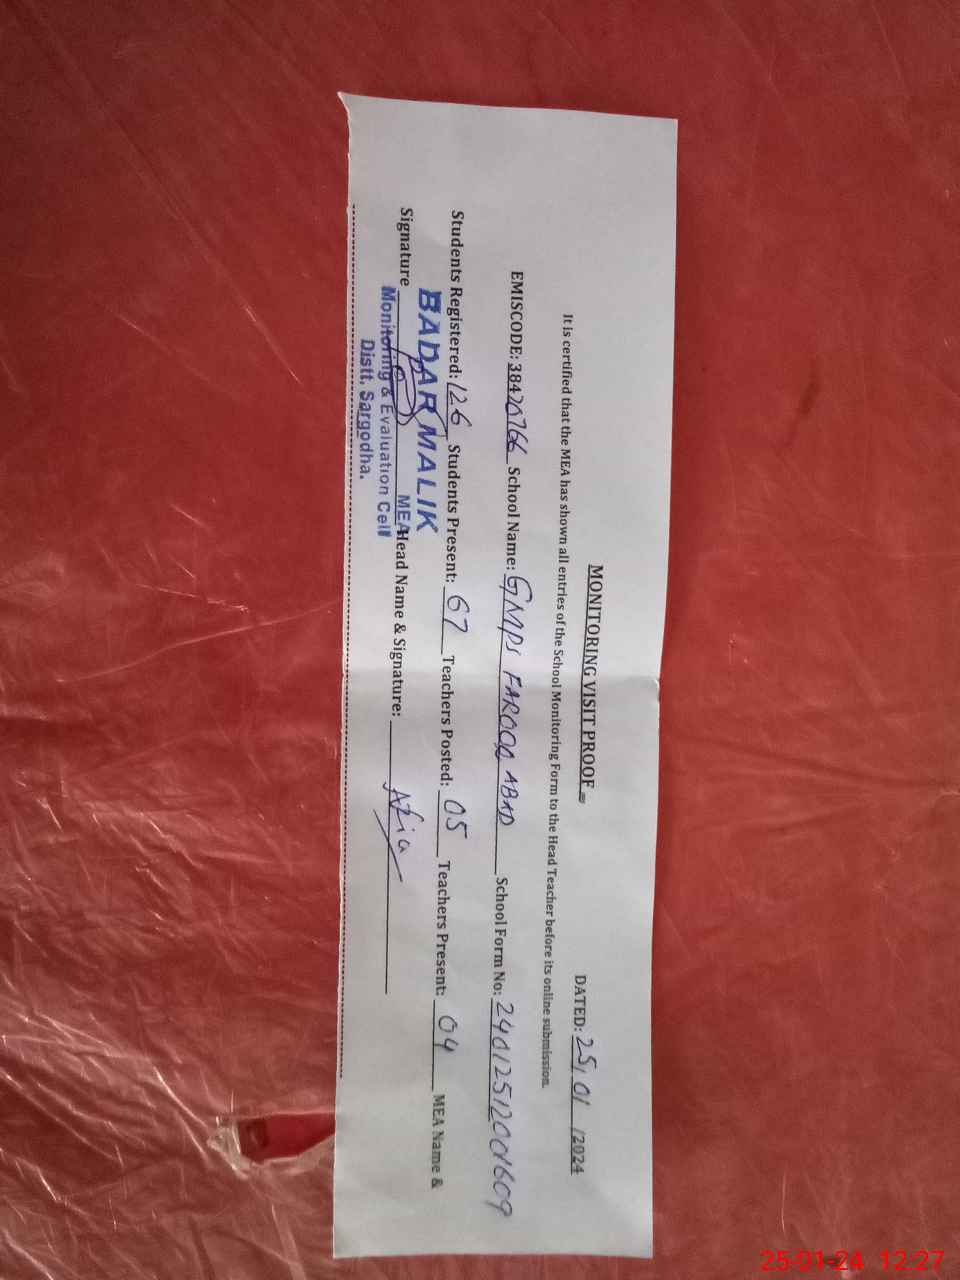 MONITORING VISIT PROOF
DATED: 25/01/2024
It is certified that the MEA has shown all entries of the School Monitoring Form to the Head Teacher before its online submission.
EMISCODE: 38420766 School Name: GMPS FAROOQ ABAD School Form No: 24012512001609
Students Registered: 126 Students Present: 67 Teachers Posted: 05 Teachers Present: 04 MEA Name &
Signature Head Name & Signature:
BADAR MALIK
MEA
Monitoring & Evaluation Cell
Distt. Sargodha.
25-01-24 12:27